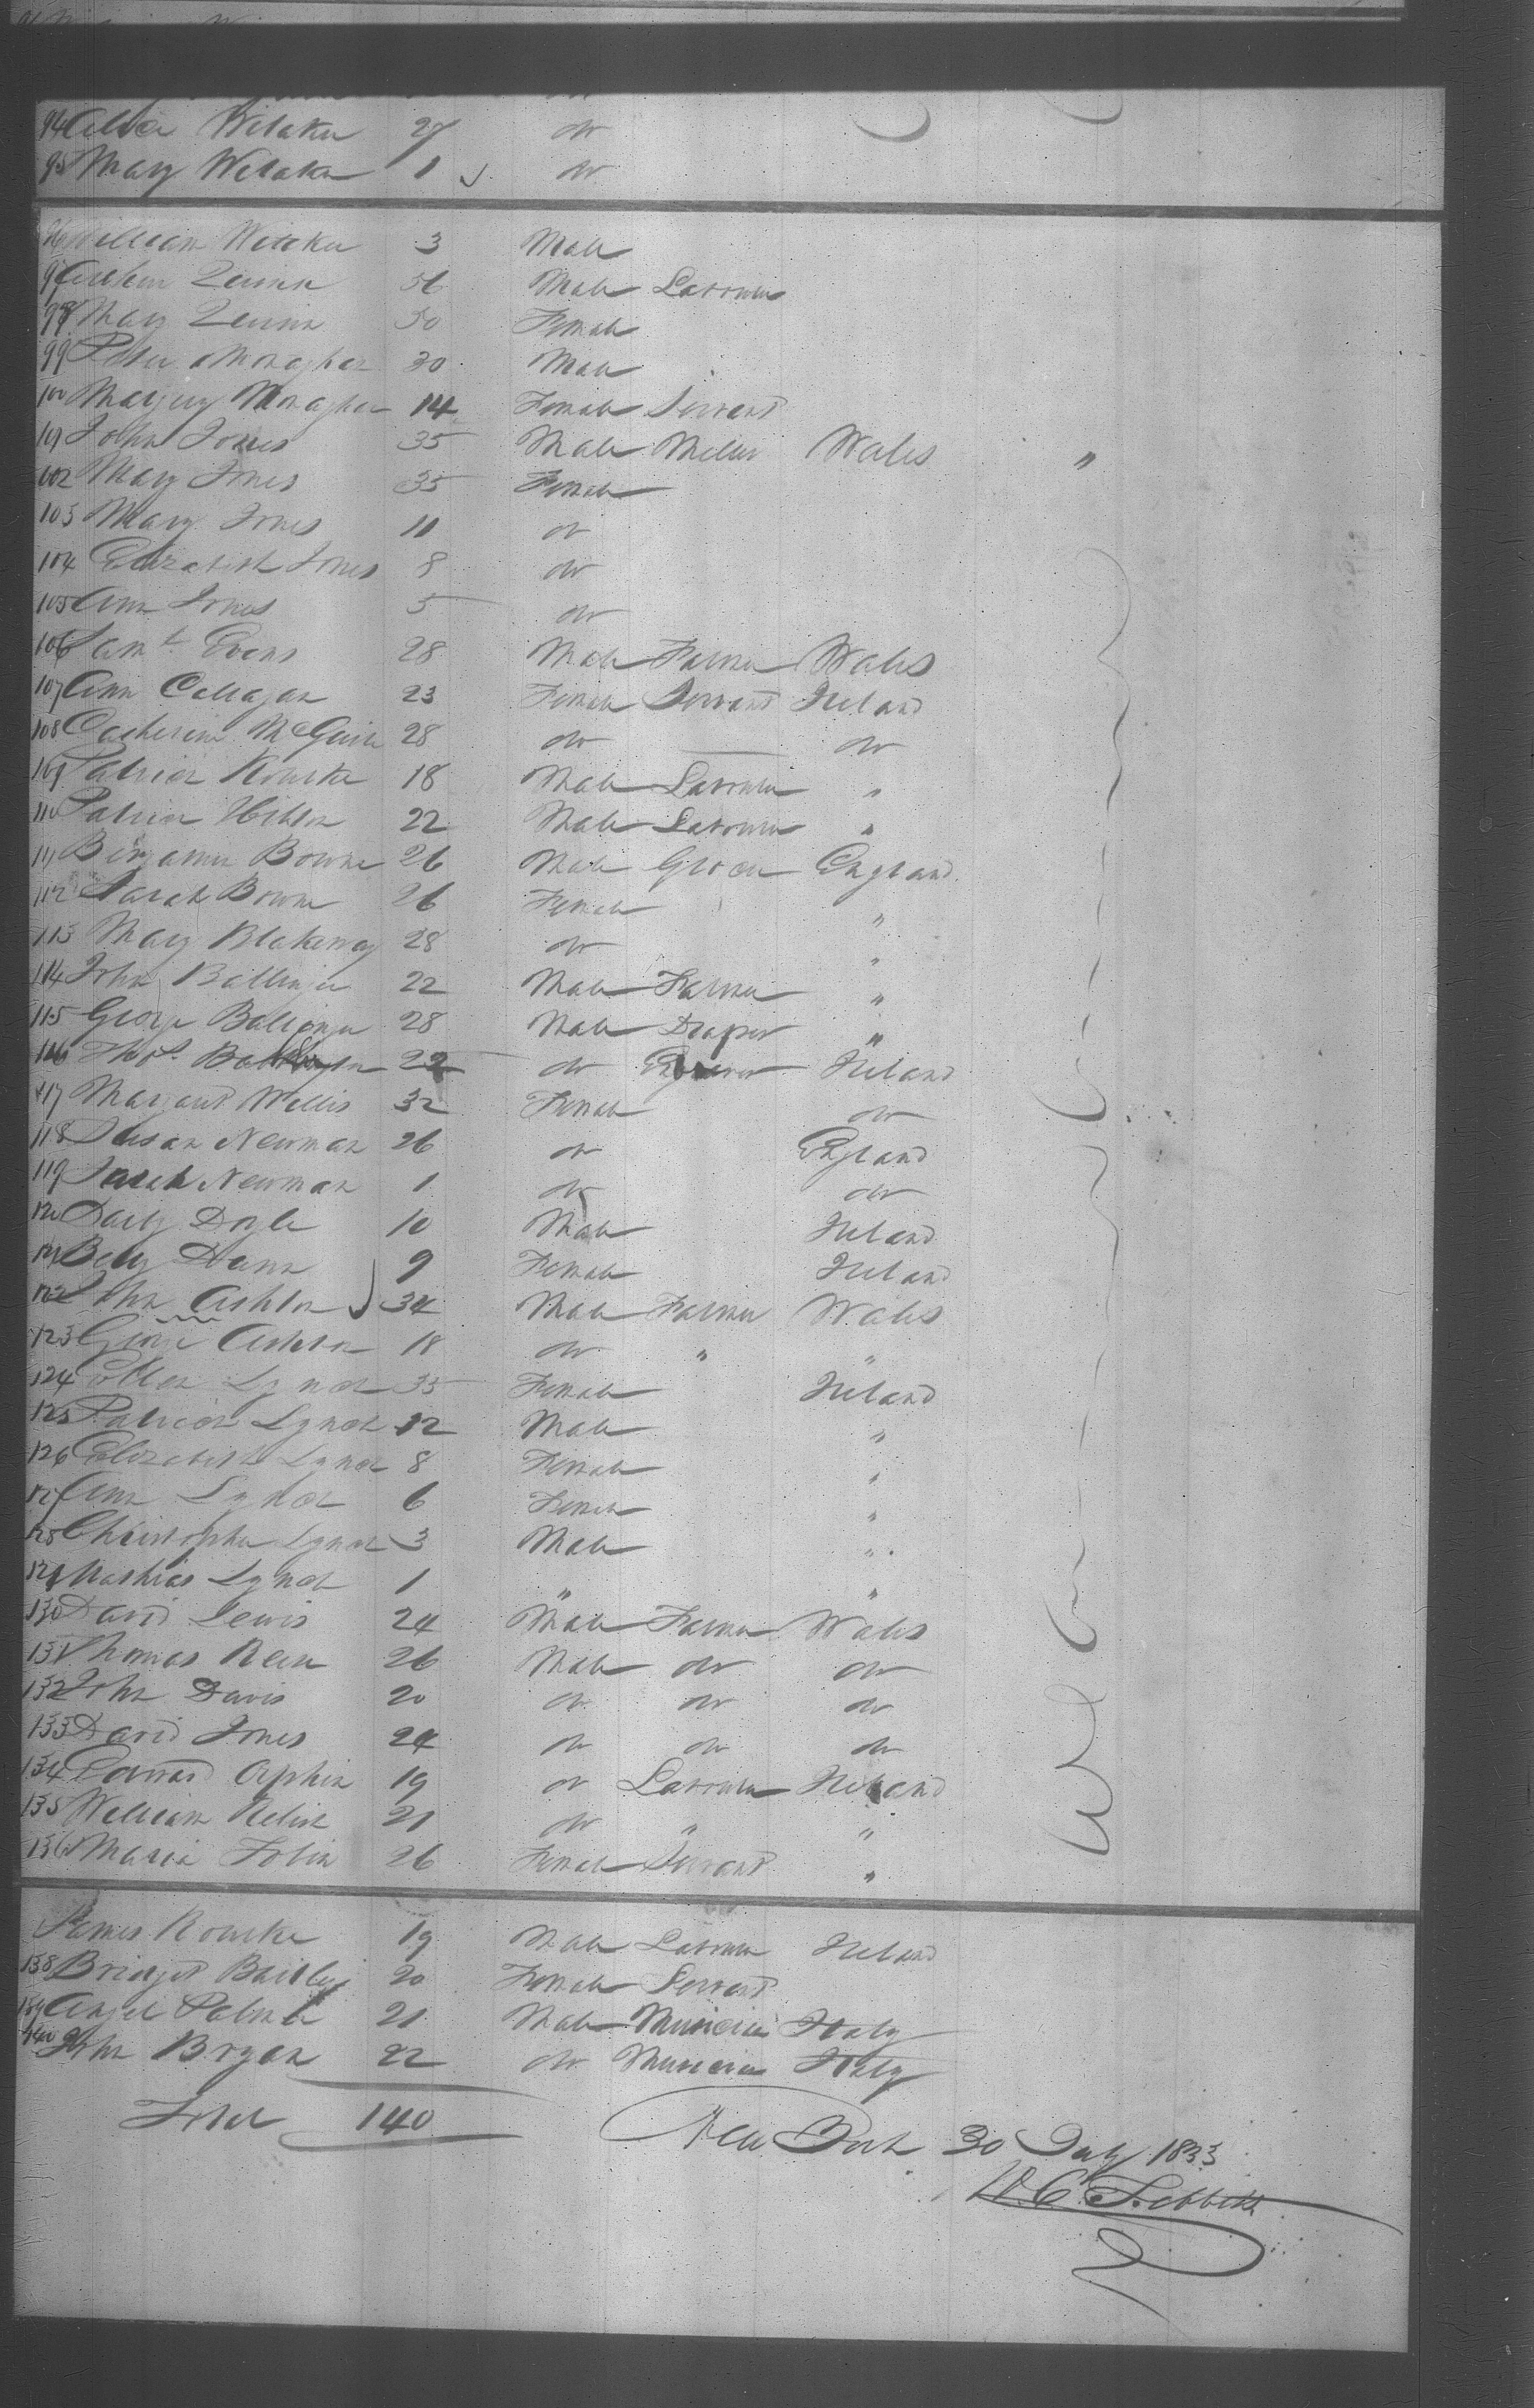 94 Witaker 27 do
95 Mary Witaker 1 do
96 William Witaker 3 Male
97 Quinn 56 Male Labourer
98 Mary Quinn 50 Female
99 Peter Monaghan 30 Male
100 Margery Monaghan 14 Female Servant
101 John Jones 35 Male Miller Wales "
102 Mary Jones 35 Female
103 Mary Jones 11 do
104 Elizabeth Jones 8 do
105 Ann Jones 5 do
106 Saml. Evans 28 Male Farmer Wales
107 Ann Callagan 23 Female Servant Ireland
108 Catherine McGuire 28 do do
109 Patrick Rourke 18 Male Labourer "
110 Patrick 22 Male Labourer "
111 Benjamin Bowne 26 Male Grocer England
112 Sarah Bowne 26 Female "
113 Mary Blakeway 28 do "
114 John Ballinger 22 Male Farmer "
115 George Ballinger 28 Male Draper "
116 Thos. 22 do Ireland
117 Margaret Willis 32 Female do
118 Susan Newman 26 do England
119 Sarah Newman 1 do do
120 Darby Doyle 10 Male Ireland
121 Betty Dann 9 Female Ireland
122 John Ashton 34 Male Farmer Wales
123 George Ashton 18 do " "
124 Ellen Lynch 35 Female Ireland
125 Patrick Lynch 12 Male "
126 Elizabeth Lynch 8 Female "
127 Ann Lynch 6 Female "
128 Christopher Lynch 3 Male "
129 Mathias Lynch 1 " "
130 David Lewis 24 Male Farmer Wales
131 Thomas Rees 26 Male do do
132 John Davis 20 do do do
133 David Jones 24 do do do
134 Edward 19 do Labourer Ireland
135 William 21 do " "
136 Maria Tobin 26 Female Servant "
James Rourke 19 Male Labourer Ireland
138 Bridget Bailey 20 Female Servant
139 Angel 21 Male Musician Italy
140 John Bryan 22 do Musician Italy
Total 140
New York 30 July 1833
W. C. Tebbetts